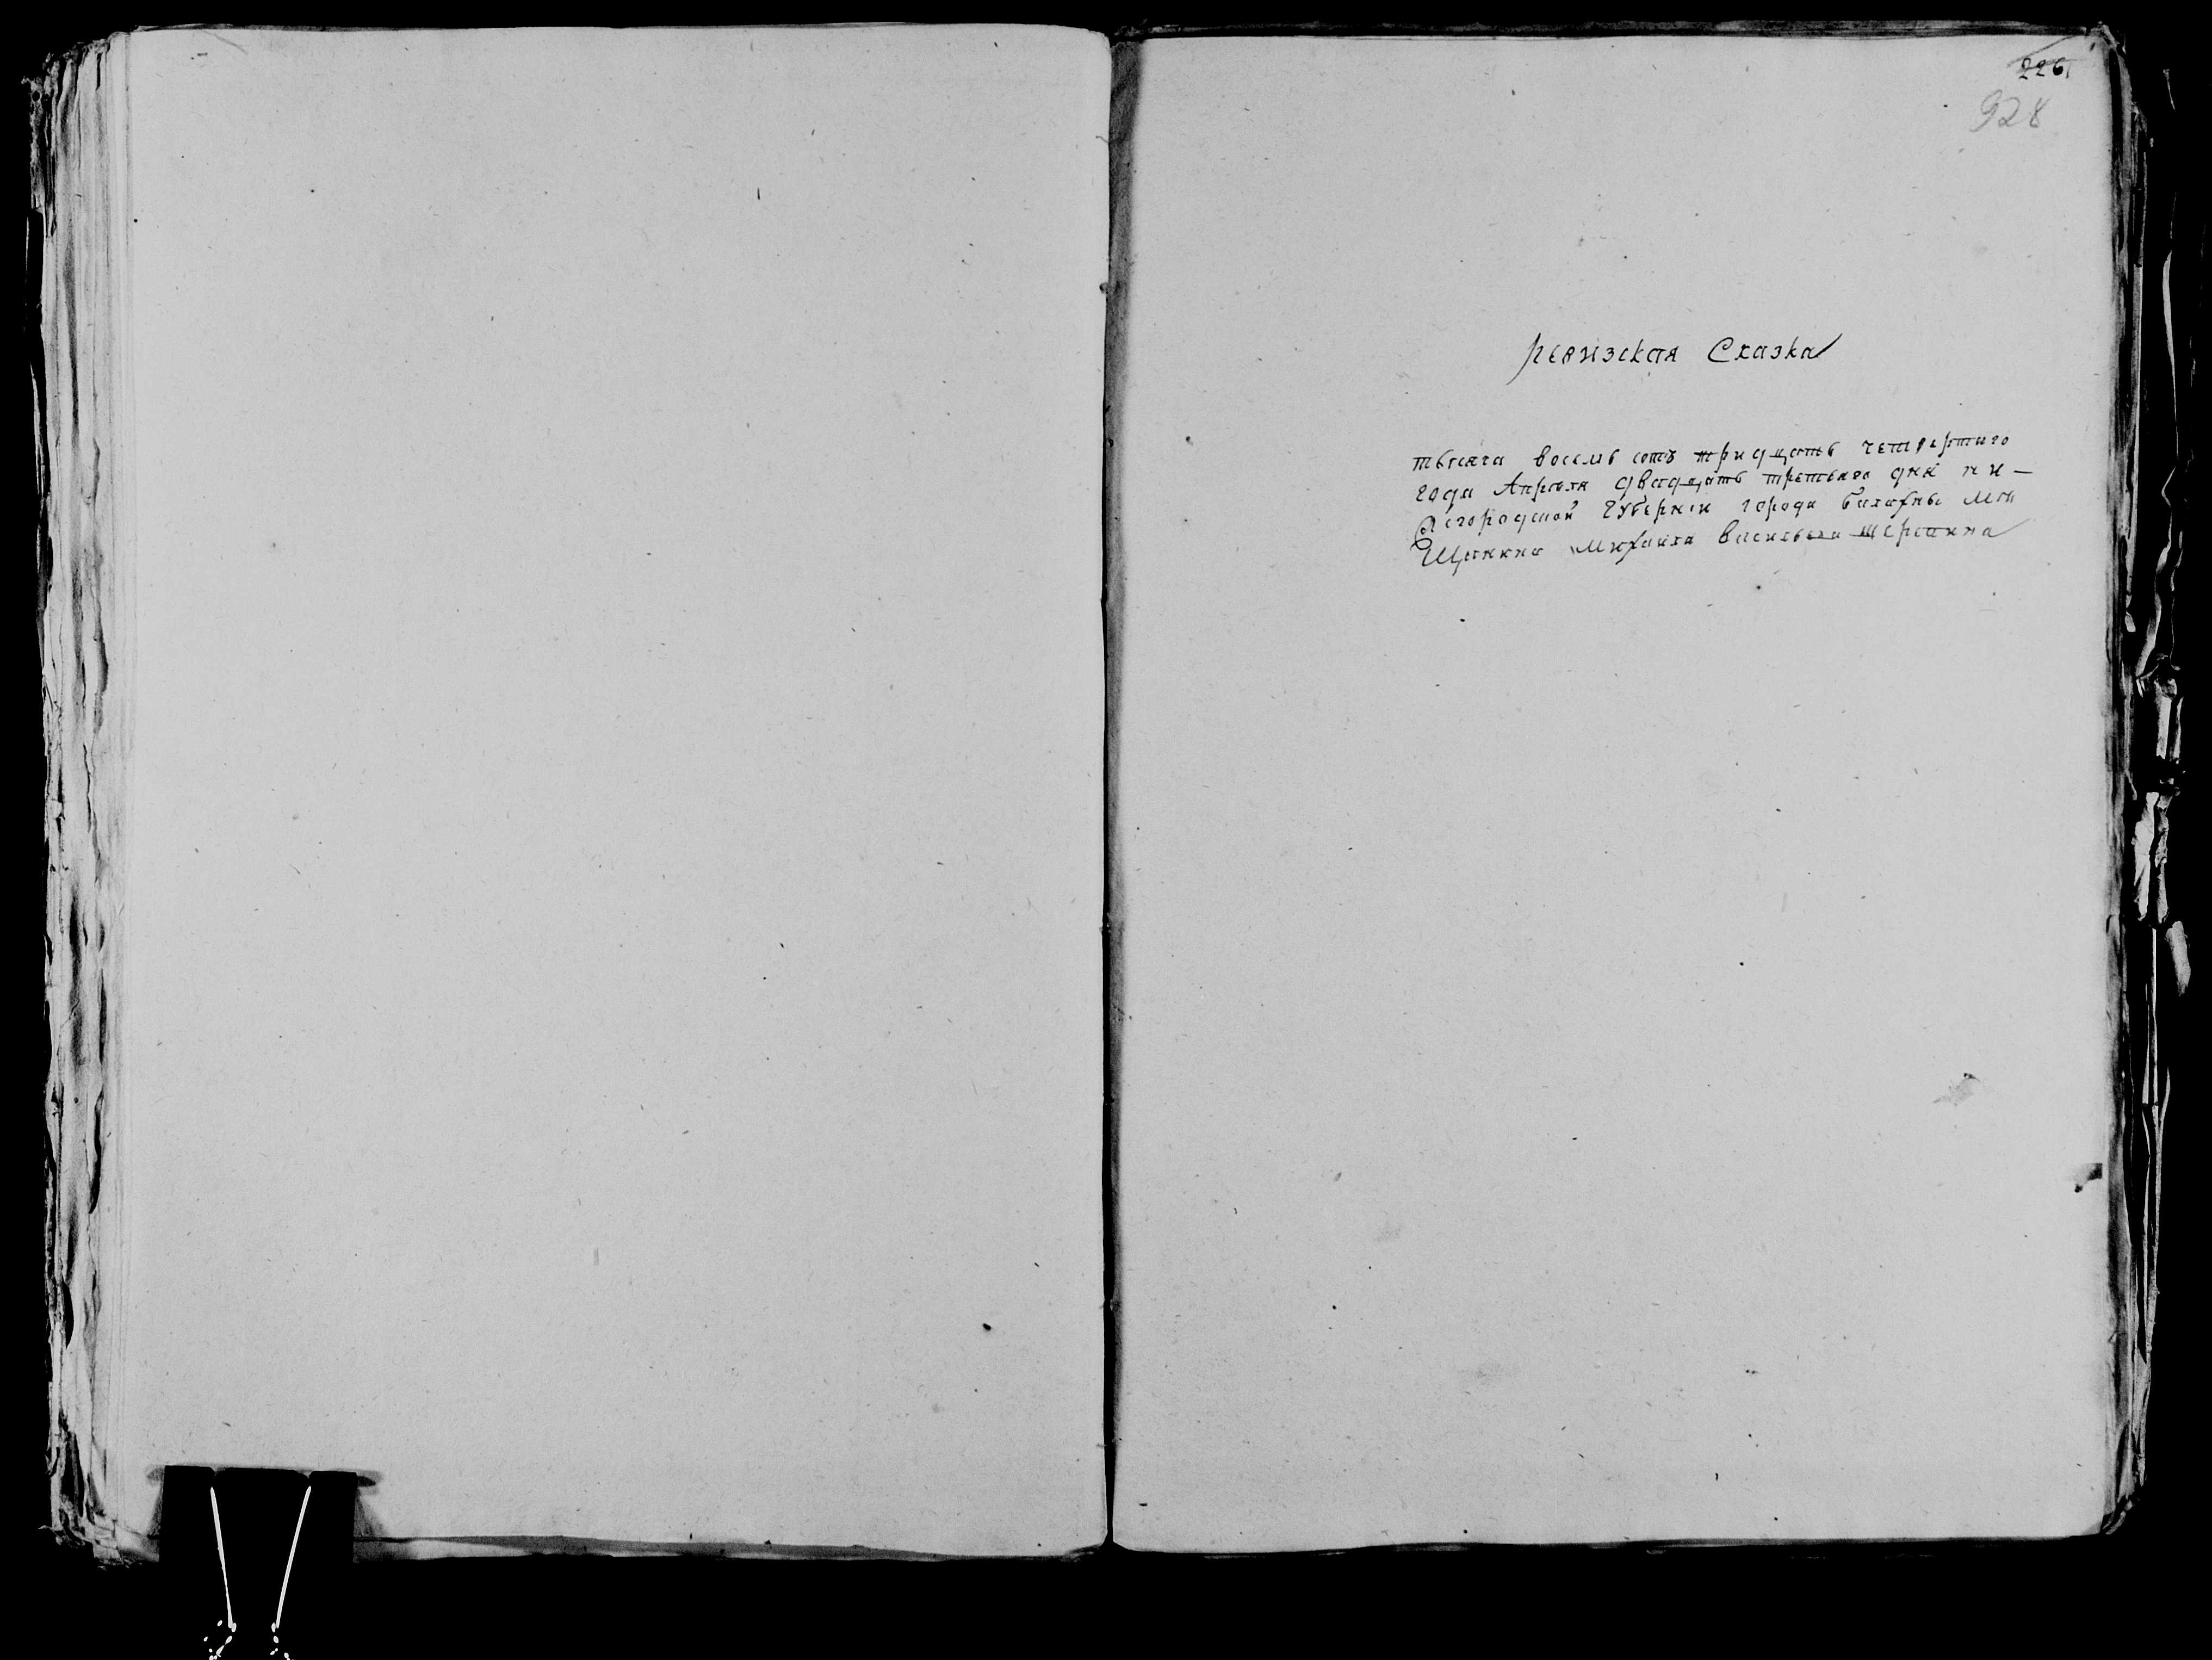 226.
928
ревизская Сказка
тысяча восемь сотъ тридцать четвертаго
года Апреля двадцать третьяго дня ни-
жегородской Губернiи города балахны ме
Щанина Михаила васильева